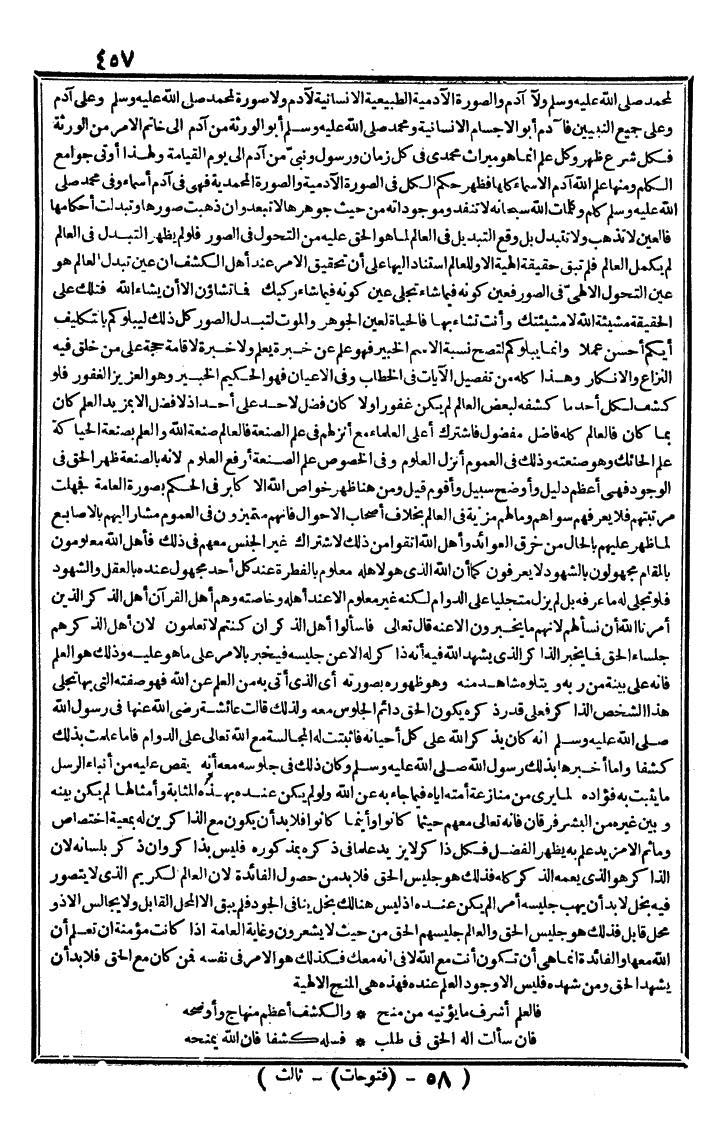 ٤٥٧
لمحمد صلى الله عليه وسلم ولا آدم والصورة الآدمية الطبيعية الانسانية لآدم ولا صورة لمحمد صلى الله عليه وسلم وعلى آدم
وعلى جميع النبيين فآدم أبو الاجسام الانسانية ومحمد صلى الله عليه وسلم أبو الورثة من آدم الى خاتم الامر من الورثة
فكل شرع ظهر وكل علم انما هو ميراث محمدى فى كل زمان ورسول ونبىّ من آدم الى يوم القيامة ولهذا أوتى جوامع
الكلم ومنها علم الله آدم الاسماء كلها فظهر حكم الكل فى الصورة الآدمية والصورة المحمدية فهى فى آدم أسماء وفى محمد صلى
الله عليه وسلم كلم وكلمات الله سبحانه لا تنفد وموجوداته من حيث جوهرها لا تبعد وان ذهبت صورها وتبدلت أحكامها
فالعين لا تذهب ولا تتبدل بل وقع التبديل فى العالم لما هو الحق عليه من التحول فى الصور فلو لم يظهر التبدل فى العالم
لم يكمل العالم فلم تبق حقيقة الهية الا وللعالم استناد اليها على أن تحقيق الامر عند أهل الكشف ان عين تبدل العالم هو
عين التحول الالهىّ فى الصور فعين كونه فيما شاء تجلى عين كونه فيما شاء ركبك فما تشاؤن الا أن يشاء الله فتلك على
الحقيقة مشيئة الله لا مشيئتك وأنت تشاء بها فالحياة لعين الجوهر والموت لتبدل الصور كل ذلك ليبلوكم بالتكليف
أيكم أحسن عملا وانما يبلوكم لتصح نسبة الاسم الخبير فهو علم عن خبرة يعلم ولا خبرة لاقامة حجة على من خلق فيه
النزاع والانكار وهذا كله من تفصيل الآيات فى الخطاب وفى الاعيان فهو الحكيم الخبير وهو العزيز الغفور فلو
كشف لكل أحد ما كشفه لبعض العالم لم يكن غفورا ولا كان فضل لاحد على أحد اذ لا فضل الا بمزيد العلم كان
بما كان فالعالم كله فاضل مفضول فاشترك أعلى العلماء مع أنزلهم فى علم الصنعة فالعالم صنعة الله والعلم بصنعة الحياكة
علم الحائك وهو صنعته وذلك فى العموم أنزل العلوم وفى الخصوص علم الصنعة أرفع العلوم لانه بالصنعة ظهر الحق فى
الوجود فهى أعظم دليل وأوضح سبيل وأقوم قيل ومن هنا ظهر خواص الله الاكابر فى الحكم بصورة العامة فجهلت
مرتبتهم فلا يعرفهم سواهم وما لهم مزية فى العالم بخلاف أصحاب الاحوال فانهم متميزون فى العموم مشار اليهم بالاصابع
لما ظهر عليهم بالحال من خرق العوائد وأهل الله انفوا من ذلك لاشتراك غير الجنس معهم فى ذلك فأهل الله معلومون
بالمقام مجهولون بالشهود لا يعرفون كما أن الله الذى هو لاهله معلوم بالفطرة عند كل أحد مجهول عنده بالعقل والشهود
فلو تجلى له ما عرفه بل لم يزل متجليا على الدوام لكنه غير معلوم الا عند أهله وخاصته وهم أهل القرآن أهل الذكر الذين
أمرنا الله أن نسألهم لانهم ما يخبرون الا عنه قال تعالى فاسألوا أهل الذكر ان كنتم لا تعلمون لان أهل الذكر هم
جلساء الحق فما يخبر الذاكر الذى يشهد الله فيه أنه ذاكر له الا عن جليسه فيخبر بالامر على ما هو عليه وذلك هو العلم
فانه على بينة من ربه ويتلوه شاهد منه وهو ظهوره بصورته أى الذى أتى به من العلم عن الله فهو صفته التى بها تجلى
هذا الشخص الذاكر فعلى قدر ذكره يكون الحق دائم الجلوس معه ولذلك قالت عائشة رضى الله عنها فى رسول الله
صلى الله عليه وسلم انه كان يذكر الله على كل أحيانه فاثبتت له المجالسة مع الله تعالى على الدوام فاما علمت بذلك
كشفا واما أخبرها بذلك رسول الله صلى الله عليه وسلم وكان ذلك فى جلوسه معه أنه يقص عليه من أنباء الرسل
ما يثبت به فؤاده لما يرى من منازعة أمته اياه فيما جاء به عن الله ولو لم يكن عنده بهذه المثابة وأمثالها لم يكن بينه
وبين غيره من البشر فرقان فانه تعالى معهم حيثما كانوا وأينما كانوا فلا بد أن يكون مع الذاكرين له بمعية اختصاص
وما ثم الا مزيد علم به يظهر الفضل فكل ذاكر لا يزيد علما فى ذكره بمذكوره فليس بذاكر وان ذكر بلسانه لان
الذاكر هو الذى يعمه الذكر كله فذلك هو جليس الحق فلا بد من حصول الفائدة لان العالم الكريم الذى لا يتصور
فيه بخل لا بد أن يهب جليسه أمرا لم يكن عنده اذ ليس هنالك بخل ينافى الجود فلم يبق الا المحل القابل ولا يجالس الا ذو
محل قابل فذلك هو جليس الحق والعالم جليسهم الحق من حيث لا يشعرون وغاية العامة اذا كانت مؤمنة ان تعلم أن
الله معها والفائدة انما هى أن تكون أنت مع الله لا فى انه معك فكذلك هو الامر فى نفسه فمن كان مع الحق فلا بد أن
يشهد الحق ومن شهده فليس الا وجود العلم عنده فهذه هى المنح الالهية
فالعلم أشرف ما يؤتيه من منح * والكشف أعظم منهاج وأوضحه
فان سألت اله الحق فى طلب * فسله كشفا فان الله يمنحه
( ٥٨ - (فتوحات) - ثالث )